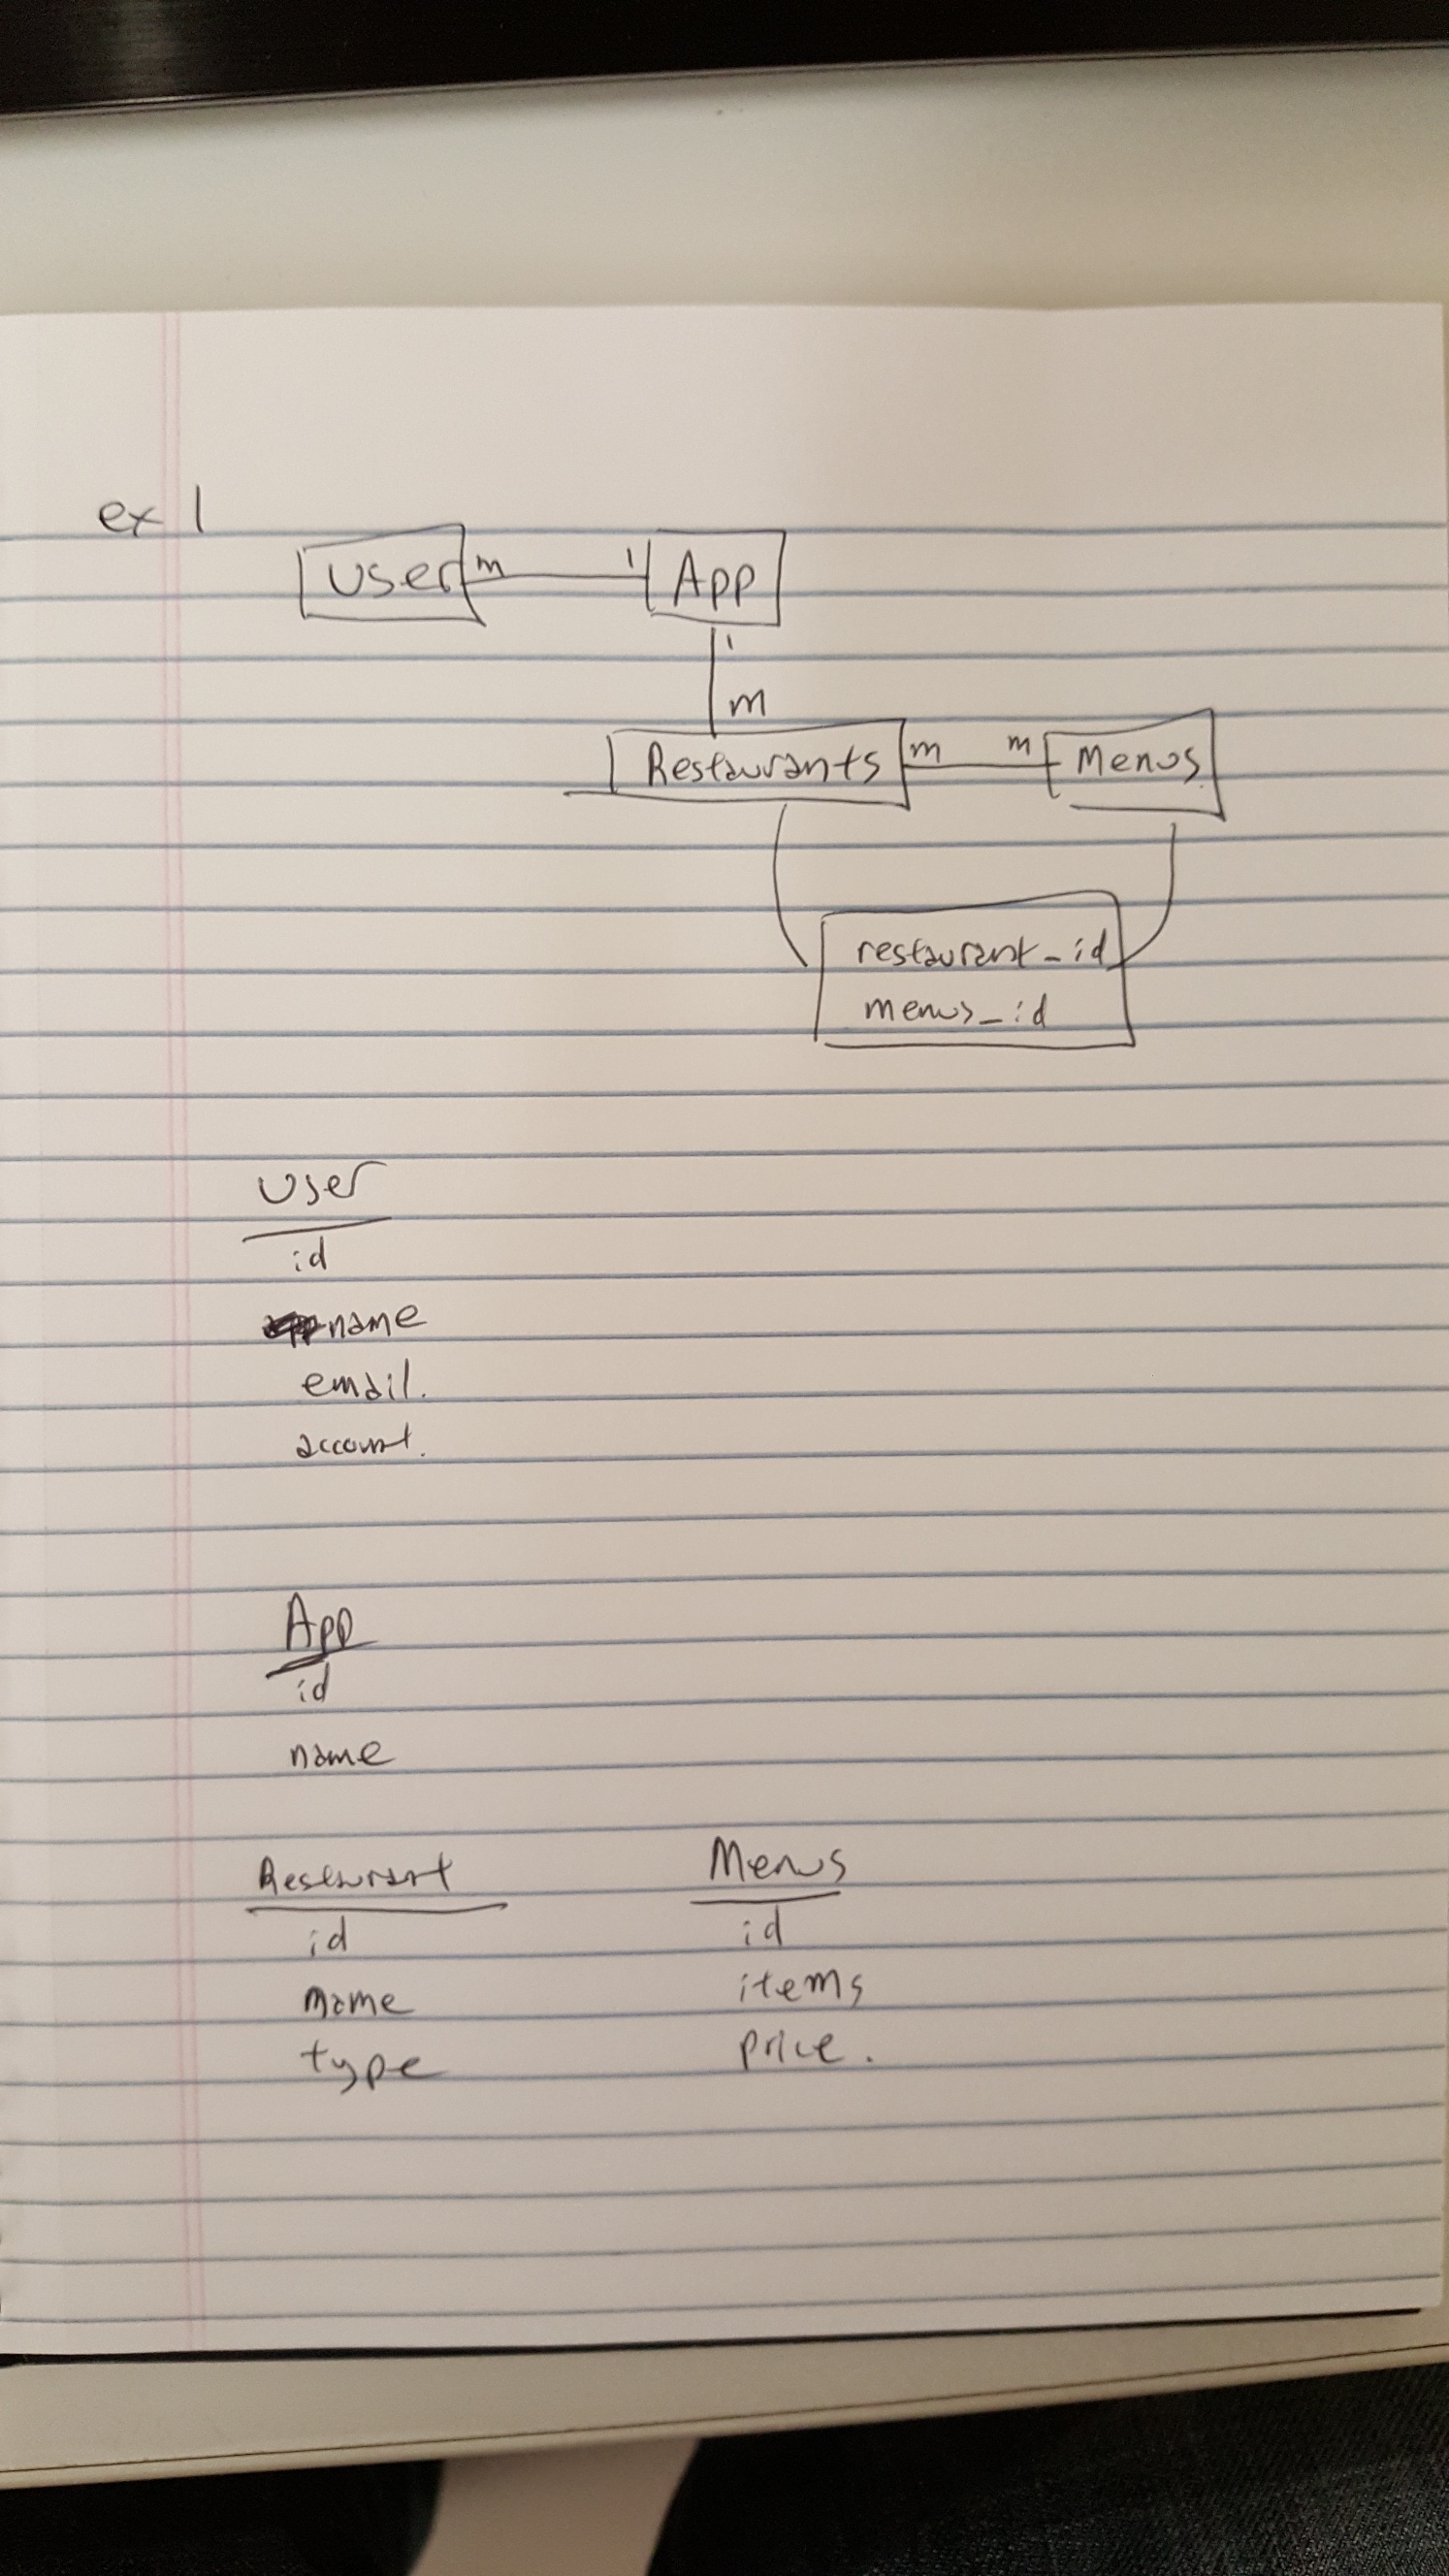 ex 1
User m 1 App
1
m
Restaurants m m Menus
restaurant_id
menus_id
User
id
name
email.
account.
App
id
name
Restaurant
id
name
type
Menus
id
items
price.